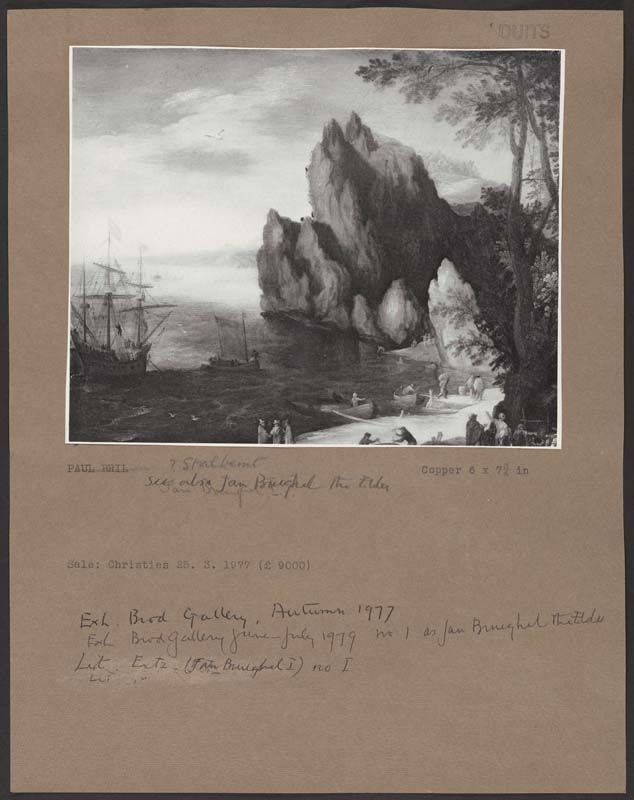 DUITS
PAUL BRIL ? Stalbemt Copper 6 x 7¾ in
see also Jan Brueghel the Elder
Jan Brueghel
Sale: Christies 25. 3. 1977 (£ 9000)
Exh. Brod Gallery, Autumn 1977
Exh Brod Gallery June-July 1979 no 1 as Jan Brueghel the Elder
Lit. Ertz (Jan Brueghel I) no I
Lit "